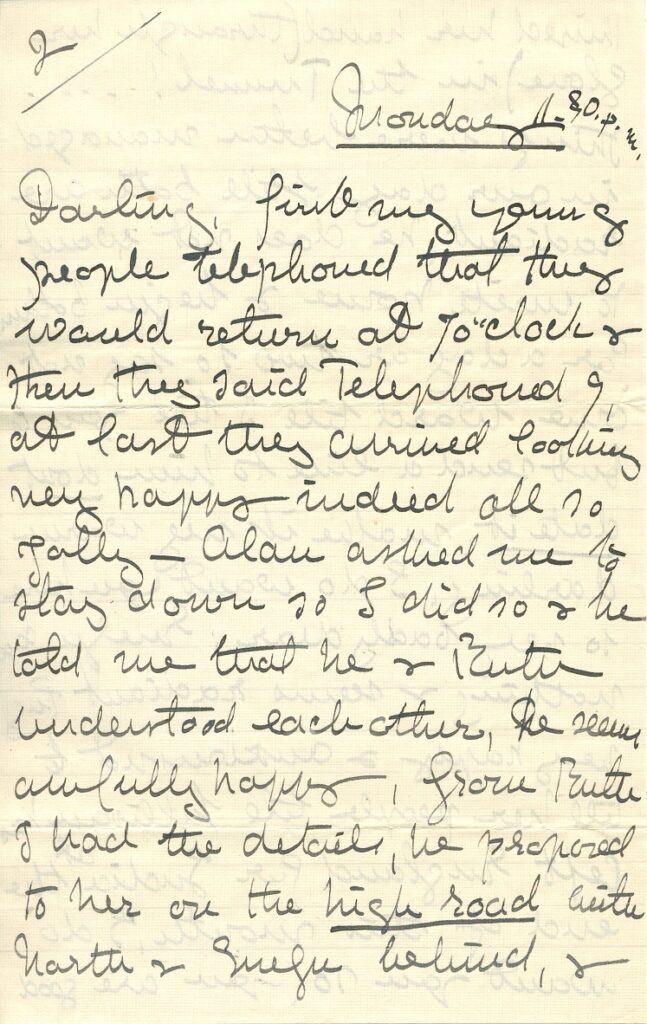 2
Monday 11.30.p.m.
Darling, first my young
people telephoned that they
would return at 7o"clock &
then they said Telephoned 9,
at last they arrived looking
very happy indeed all so
jolly – Alan asked me to
stay down so I did so & he
told me that he & Ruth
understood each other, he seems
awfully happy, from Ruth
I had the details, he proposed
to her on the high road with
North & behind, &